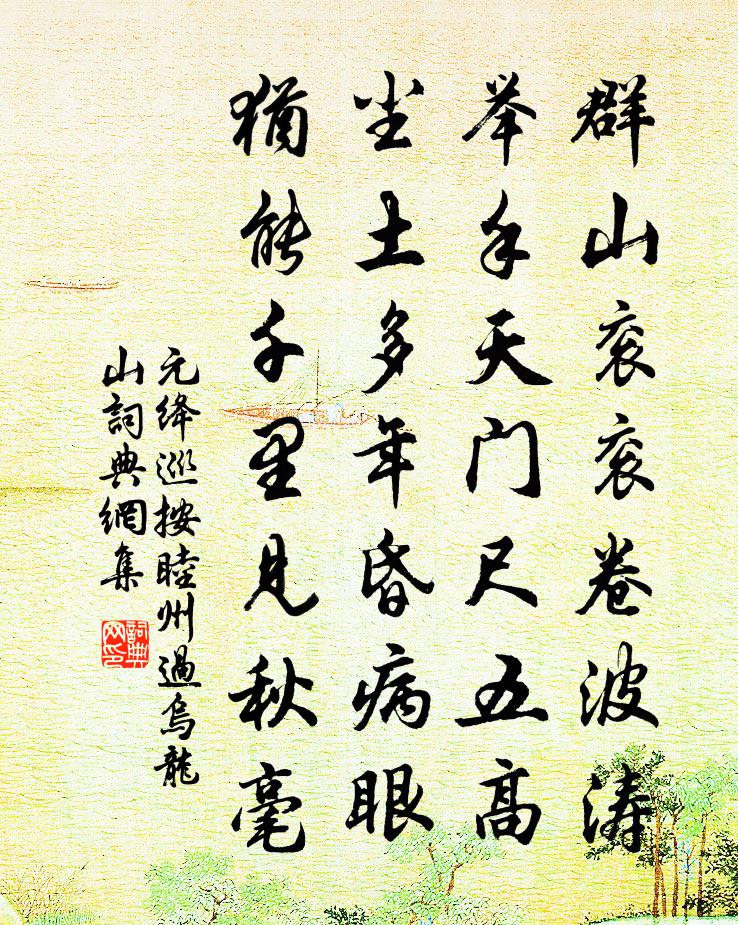 群山衮衮卷波涛
举手天门尺五高
尘土多年昏病眼
犹能千里见秋毫
元绛巡按睦州過烏龍
山詞典網集
詞典
网印